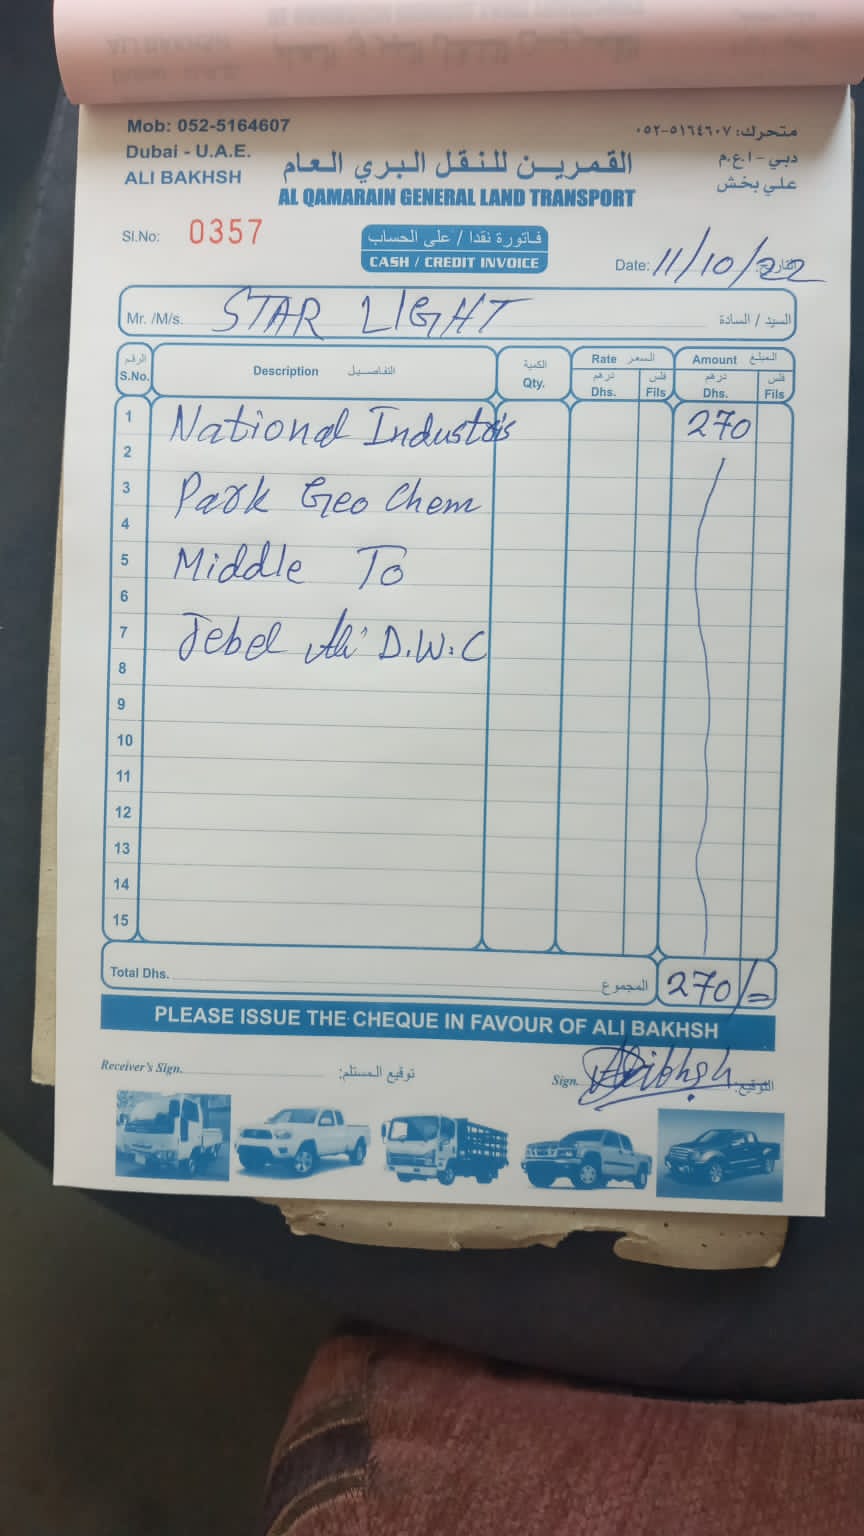 Mob: 052-5164607
متحرك: ٠٥٢-٥١٦٤٦٠٧
Dubai - U.A.E.
دبي - ا.ع.م
ALI BAKHSH
علي بخش
القمرين للنقل البري العام
AL QAMARAIN GENERAL LAND TRANSPORT
Sl.No: 0357
فاتورة نقدا / على الحساب
CASH / CREDIT INVOICE
Date: 11/10/22 التاريخ:
Mr. /M/s. STAR LIGHT السيد / السادة
الرقم S.No. Description التفاصيل الكمية Qty. Rate السعر Amount المبلغ
درهم Dhs. فلس Fils درهم Dhs. فلس Fils
1 National Industris 270
2
3 Park Geo Chem
4
5 Middle To
6
7 Jebel Ali D.W.C
8
9
10
11
12
13
14
15
Total Dhs. المجموع 270/=
PLEASE ISSUE THE CHEQUE IN FAVOUR OF ALI BAKHSH
Receiver's Sign. توقيع المستلم: Sign. التوقيع: